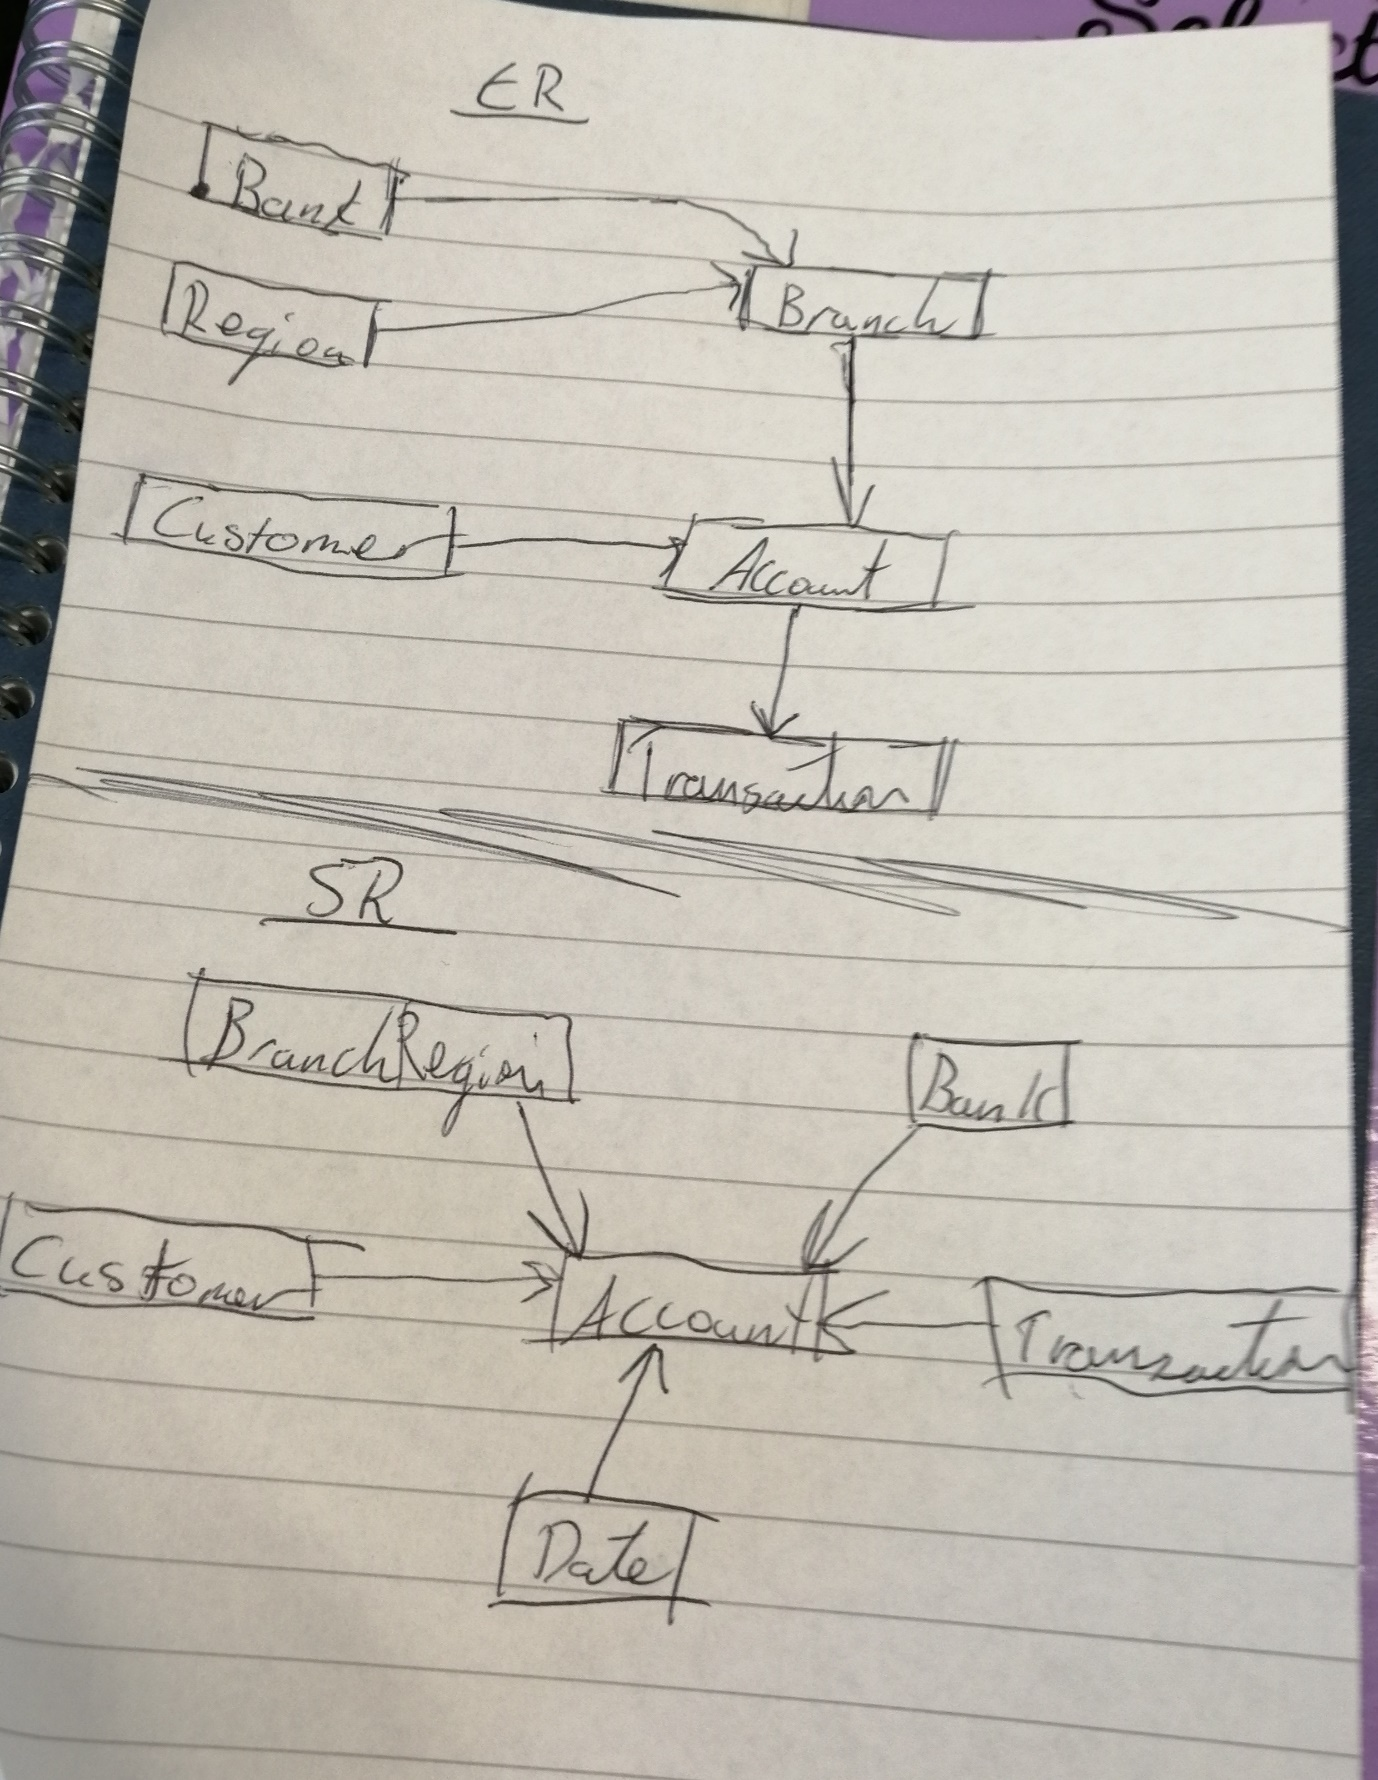 ER
Bank
Region
Branch
Customer
Account
Transaction
SR
BranchRegion
Bank
Customer
Account
Transaction
Date